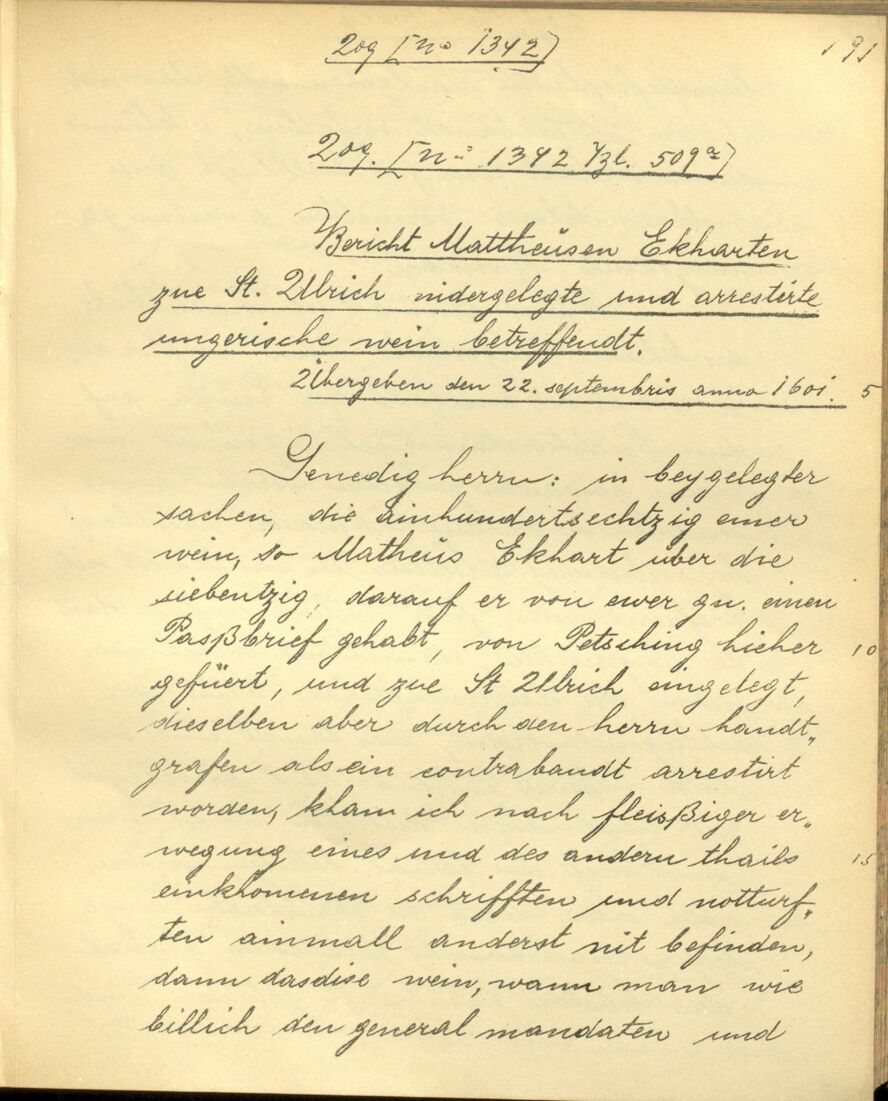 209 [no 1342]
191
209. [no 1342 Yzl. 509a]
Bericht Mattheüsen Ekharten
zue St. Ulrich nidergelegte und arrestirte
ungerische wein betreffendt.
Übergeben den 22. septembris anno 1601. 5
Genedig herrn: in beygelegter
sachen, die ainhundertsechtzig emer
wein, so Matheüs Ekhart über die
siebentzig, darauf er von ewer gn. einen
Paßbrief gehabt, von Petsching hieher 10
gefüert, und zue St Ulrich eingelegt,
dieselben aber durch den herrn handt„
grafen als ein contrabandt arrestirt
worden, kham ich nach fleisßiger er„
wegung eines und des andern thails 15
einkhomenen schrifften und notturf„
ten ainmall anderst nit befinden,
dann das dise wein, wann man wie
billich den general mandaten und